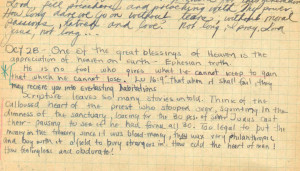 Lord, full
How long dare I go on without tears, without moral
passion, hatred and love? Not long, I pray, Lord
Jesus, not long...
Oct 28 - One of the great blessings of Heaven is the
appreciation of heaven on earth - Ephesian truth.
He is no fool who gives what he cannot keep to gain
that which he cannot lose. Lu 16:9 "that when it shall fail they
may receive you into everlasting habitations."
Scripture leaves so many stories untold. Think of the
calloused heart of the priest who stooped over, squinting in the
dimness of the sanctuary, looking for the 30 pcs of silver Judas cast
there - pausing to see if he had found all 30. Too legal to put the
money in the treasury since it was blood money, they wax very philanthropic
and buy with it a field to bury strangers in! How cold the heart of men!
How feelingless and obdurate!